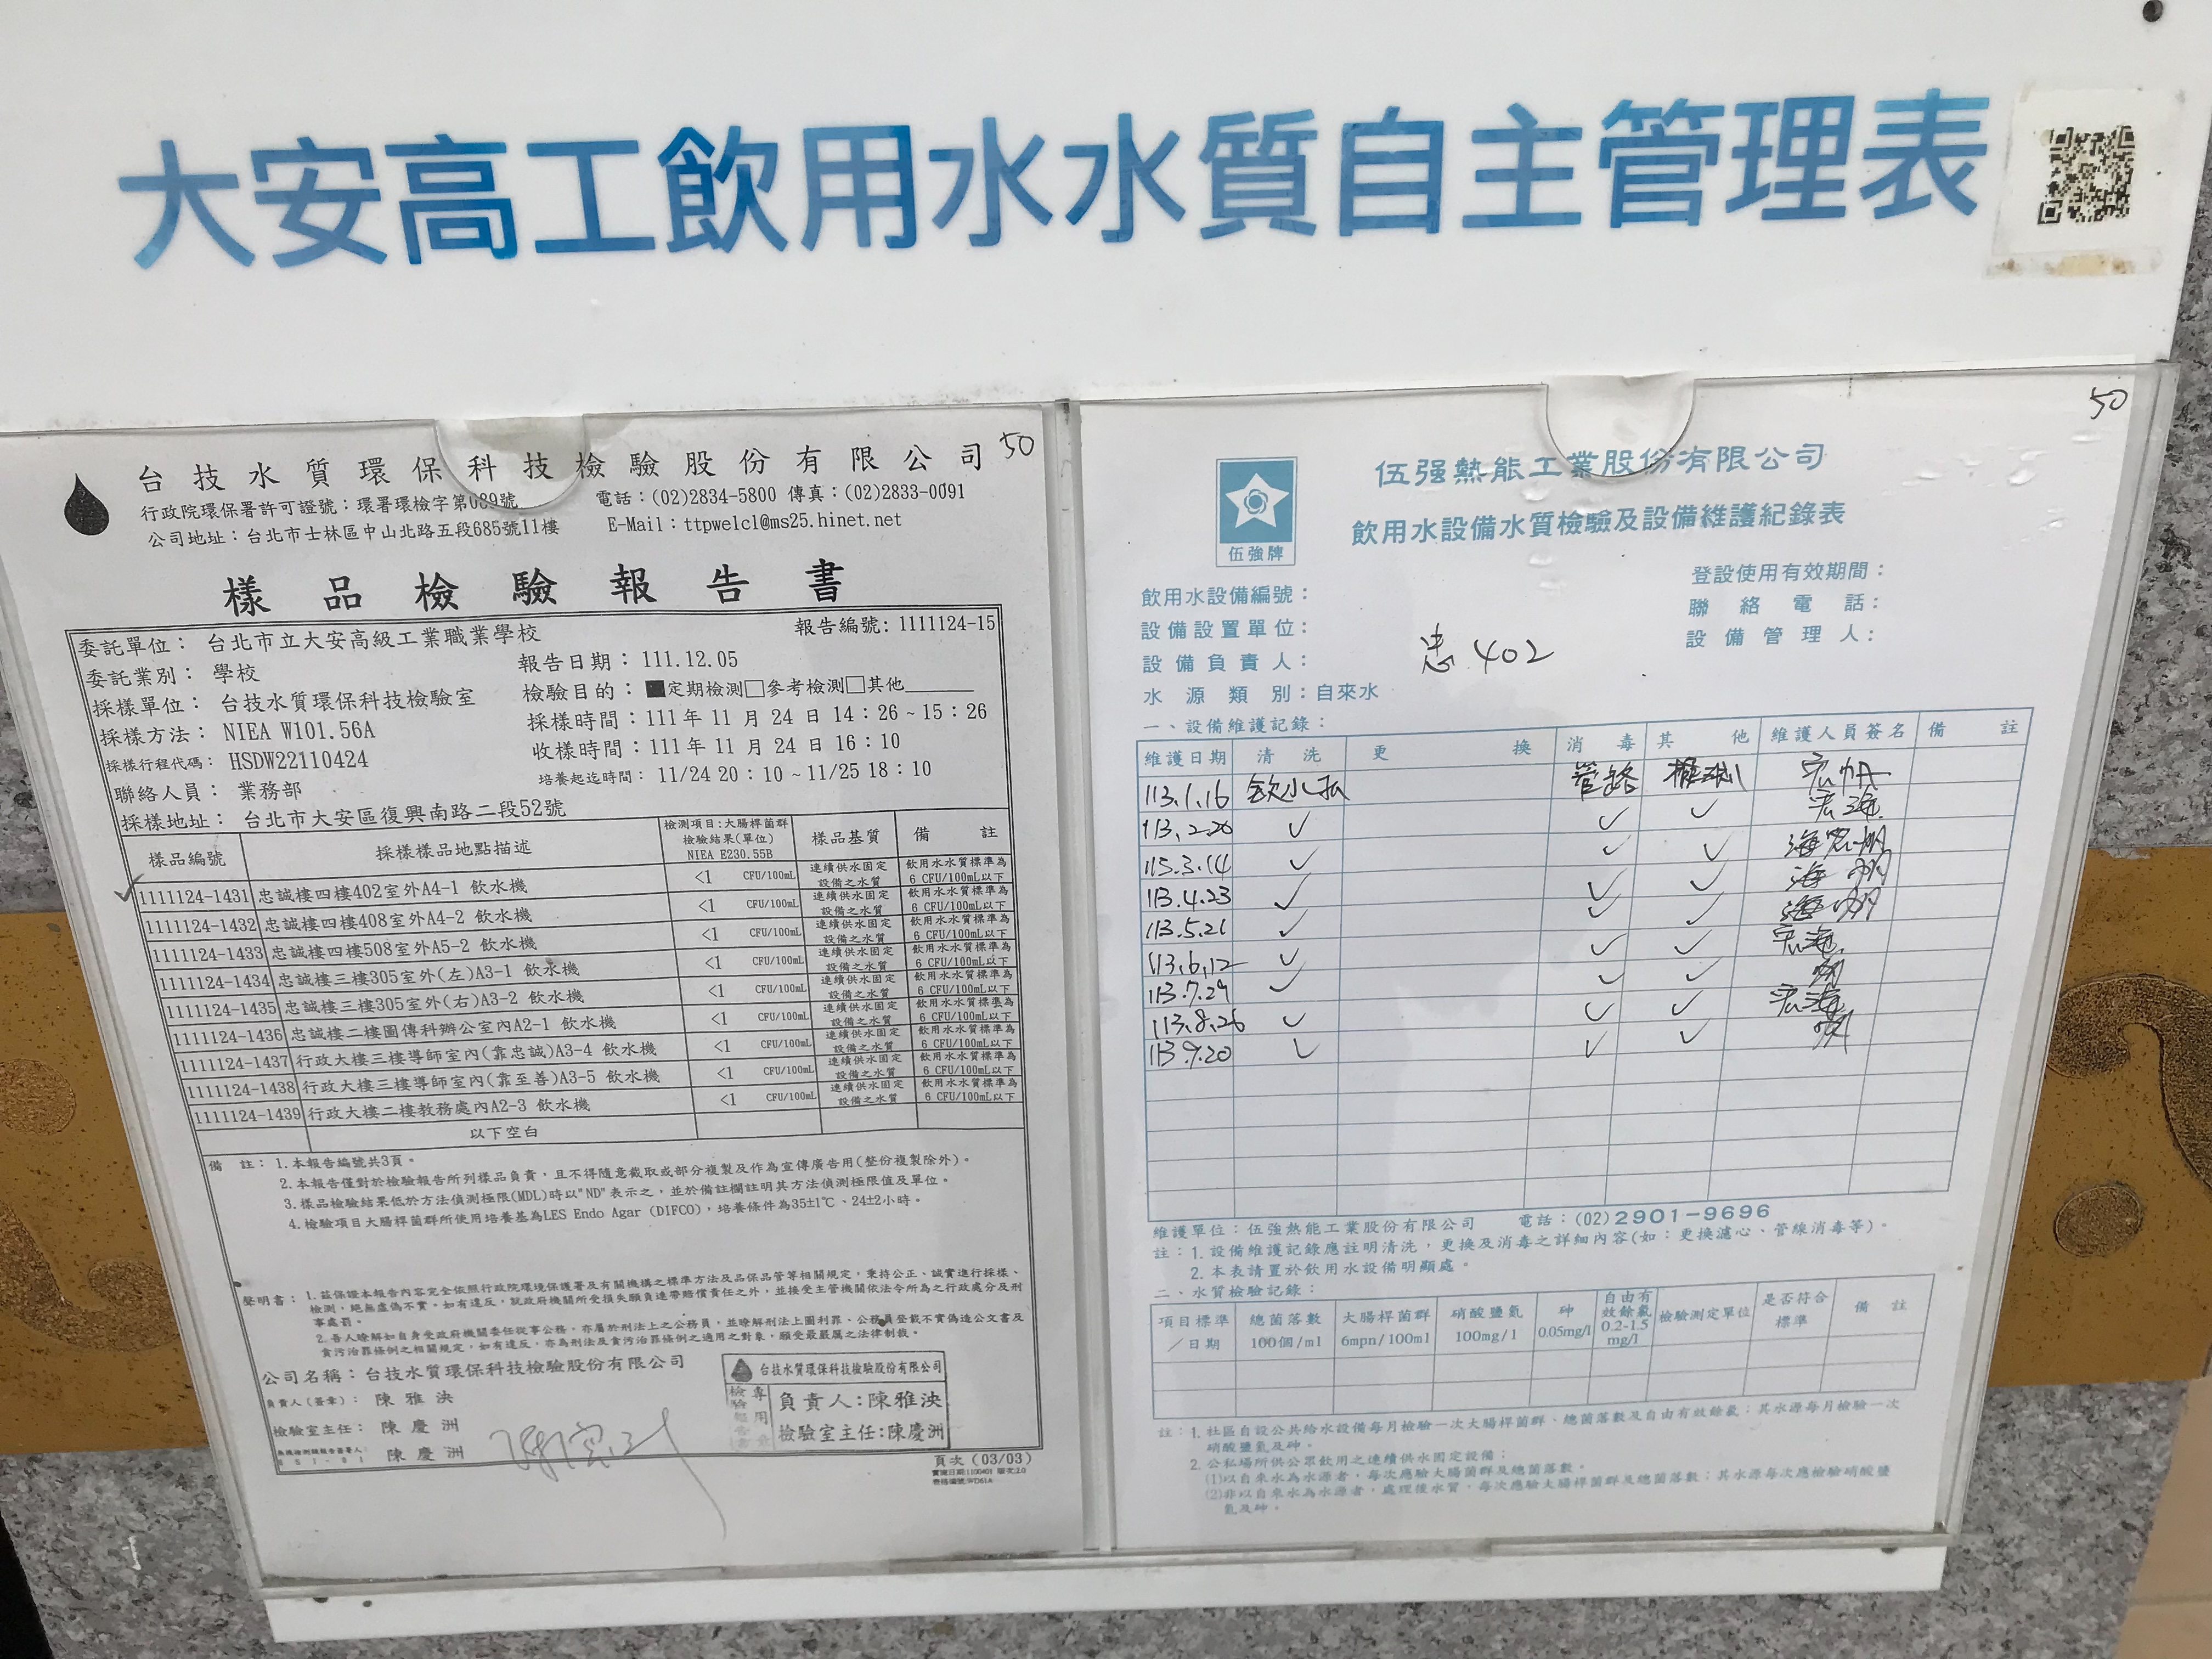 大安高工飲用水水質自主管理表
50
台技水質環保科技檢驗股份有限公司
行政院環保署許可證號：環署環檢字第089號
電話：(02)2834-5800 傳真：(02)2833-0091
公司地址：台北市士林區中山北路五段685號11樓
E-Mail：ttpwelcl@ms25.hinet.net
樣品檢驗報告書
委託單位： 台北市立大安高級工業職業學校
報告編號：1111124-15
委託業別： 學校
報告日期：111.12.05
採樣單位： 台技水質環保科技檢驗室
檢驗目的：■定期檢測□參考檢測□其他
採樣方法： NIEA W101.56A
採樣時間：111年11月24日14：26~15：26
採樣行程代碼： HSDW22110424
收樣時間：111年11月24日16：10
聯絡人員： 業務部
培養起迄時間： 11/24 20：10~11/25 18：10
採樣地址： 台北市大安區復興南路二段52號
樣品編號 採樣樣品地點描述 檢測項目：大腸桿菌群 檢驗結果(單位) NIEA E230.55B 樣品基質 備註
1111124-1431 忠誠樓四樓402室外A4-1 飲水機 <1 CFU/100mL 連續供水固定設備之水質 飲用水水質標準為6 CFU/100mL以下
1111124-1432 忠誠樓四樓408室外A4-2 飲水機 <1 CFU/100mL 連續供水固定設備之水質 飲用水水質標準為6 CFU/100mL以下
1111124-1433 忠誠樓四樓508室外A5-2 飲水機 <1 CFU/100mL 連續供水固定設備之水質 飲用水水質標準為6 CFU/100mL以下
1111124-1434 忠誠樓三樓305室外(左)A3-1 飲水機 <1 CFU/100mL 連續供水固定設備之水質 飲用水水質標準為6 CFU/100mL以下
1111124-1435 忠誠樓三樓305室外(右)A3-2 飲水機 <1 CFU/100mL 連續供水固定設備之水質 飲用水水質標準為6 CFU/100mL以下
1111124-1436 忠誠樓二樓圖傳科辦公室內A2-1 飲水機 <1 CFU/100mL 連續供水固定設備之水質 飲用水水質標準為6 CFU/100mL以下
1111124-1437 行政大樓三樓導師室內(靠忠誠)A3-4 飲水機 <1 CFU/100mL 連續供水固定設備之水質 飲用水水質標準為6 CFU/100mL以下
1111124-1438 行政大樓三樓導師室內(靠至善)A3-5 飲水機 <1 CFU/100mL 連續供水固定設備之水質 飲用水水質標準為6 CFU/100mL以下
1111124-1439 行政大樓二樓教務處內A2-3 飲水機 <1 CFU/100mL 連續供水固定設備之水質 飲用水水質標準為6 CFU/100mL以下
以下空白
備 註：1.本報告編號共3頁。
2.本報告僅對於檢驗報告所列樣品負責，且不得隨意截取或部分複製及作為宣傳廣告用(整份複製除外)。
3.樣品檢驗結果低於方法偵測極限(MDL)時以"ND"表示之，並於備註欄註明其方法偵測極限值及單位。
4.檢驗項目大腸桿菌群所使用培養基為LES Endo Agar (DIFCO)，培養條件為35±1℃、24±2小時。
聲明書：1.茲保證本報告內容完全依照行政院環境保護署及有關機構之標準方法及品保品管等相關規定，秉持公正、誠實進行採樣、
檢測，絕無虛偽不實。如有違反，就政府機關所受損失願負連帶賠償責任之外，並接受主管機關依法令所為之行政處分及刑
事處罰。
2.吾人瞭解如自身受政府機關委任從事公務，亦屬於刑法上之公務員，並瞭解刑法上圖利罪、公務員登載不實偽造公文書及
貪污治罪條例之相關規定，如有違反，亦為刑法及貪污治罪條例之適用之對象，願受最嚴厲之法律制裁。
公司名稱：台技水質環保科技檢驗股份有限公司
負責人(簽章)： 陳雅泱
檢驗室主任： 陳慶洲
陳慶洲
台技水質環保科技檢驗股份有限公司
檢驗報告專用章
負責人：陳雅泱
檢驗室主任：陳慶洲
頁次(03/03)
50
伍強牌
伍强熱能工業股份有限公司
飲用水設備水質檢驗及設備維護紀錄表
飲用水設備編號：
登設使用有效期間：
設備設置單位：
聯絡電話：
設備負責人：
設備管理人：
忠402
水源類別：自來水
一、設備維護記錄：
維護日期 清洗 更換 消毒 其他 維護人員簽名 備註
113.1.16 飲水 管路
113.2.20 ✓ ✓ ✓
113.3.14 ✓ ✓ ✓
113.4.23 ✓ ✓ ✓
113.5.21 ✓ ✓ ✓
113.6.12 ✓ ✓ ✓
113.7.29 ✓ ✓ ✓
113.8.26 ✓ ✓ ✓
113.9.20 ✓ ✓ ✓
維護單位：伍強熱能工業股份有限公司 電話：(02)2901-9696
註：1.設備維護記錄應註明清洗，更換及消毒之詳細內容(如：更換濾心、管線消毒等)。
2.本表請置於飲用水設備明顯處。
二、水質檢驗記錄：
項目標準／日期 總菌落數100個/ml 大腸桿菌群6mpn/100ml 硝酸鹽氮100mg/l 砷0.05mg/l 自由有效餘氯0.2-1.5mg/l 檢驗測定單位 是否符合標準 備註
註：1.社區自設公共給水設備每月檢驗一次大腸桿菌群、總菌落數及自由有效餘氯；其水源每月檢驗一次
硝酸鹽氮及砷。
2.公私場所供公眾飲用之連續供水固定設備：
(1)以自來水為水源者，每次應驗大腸菌群及總菌落數。
(2)非以自來水為水源者，處理後水質，每次應驗大腸桿菌群及總菌落數；其水源每次應檢驗硝酸鹽
氮及砷。